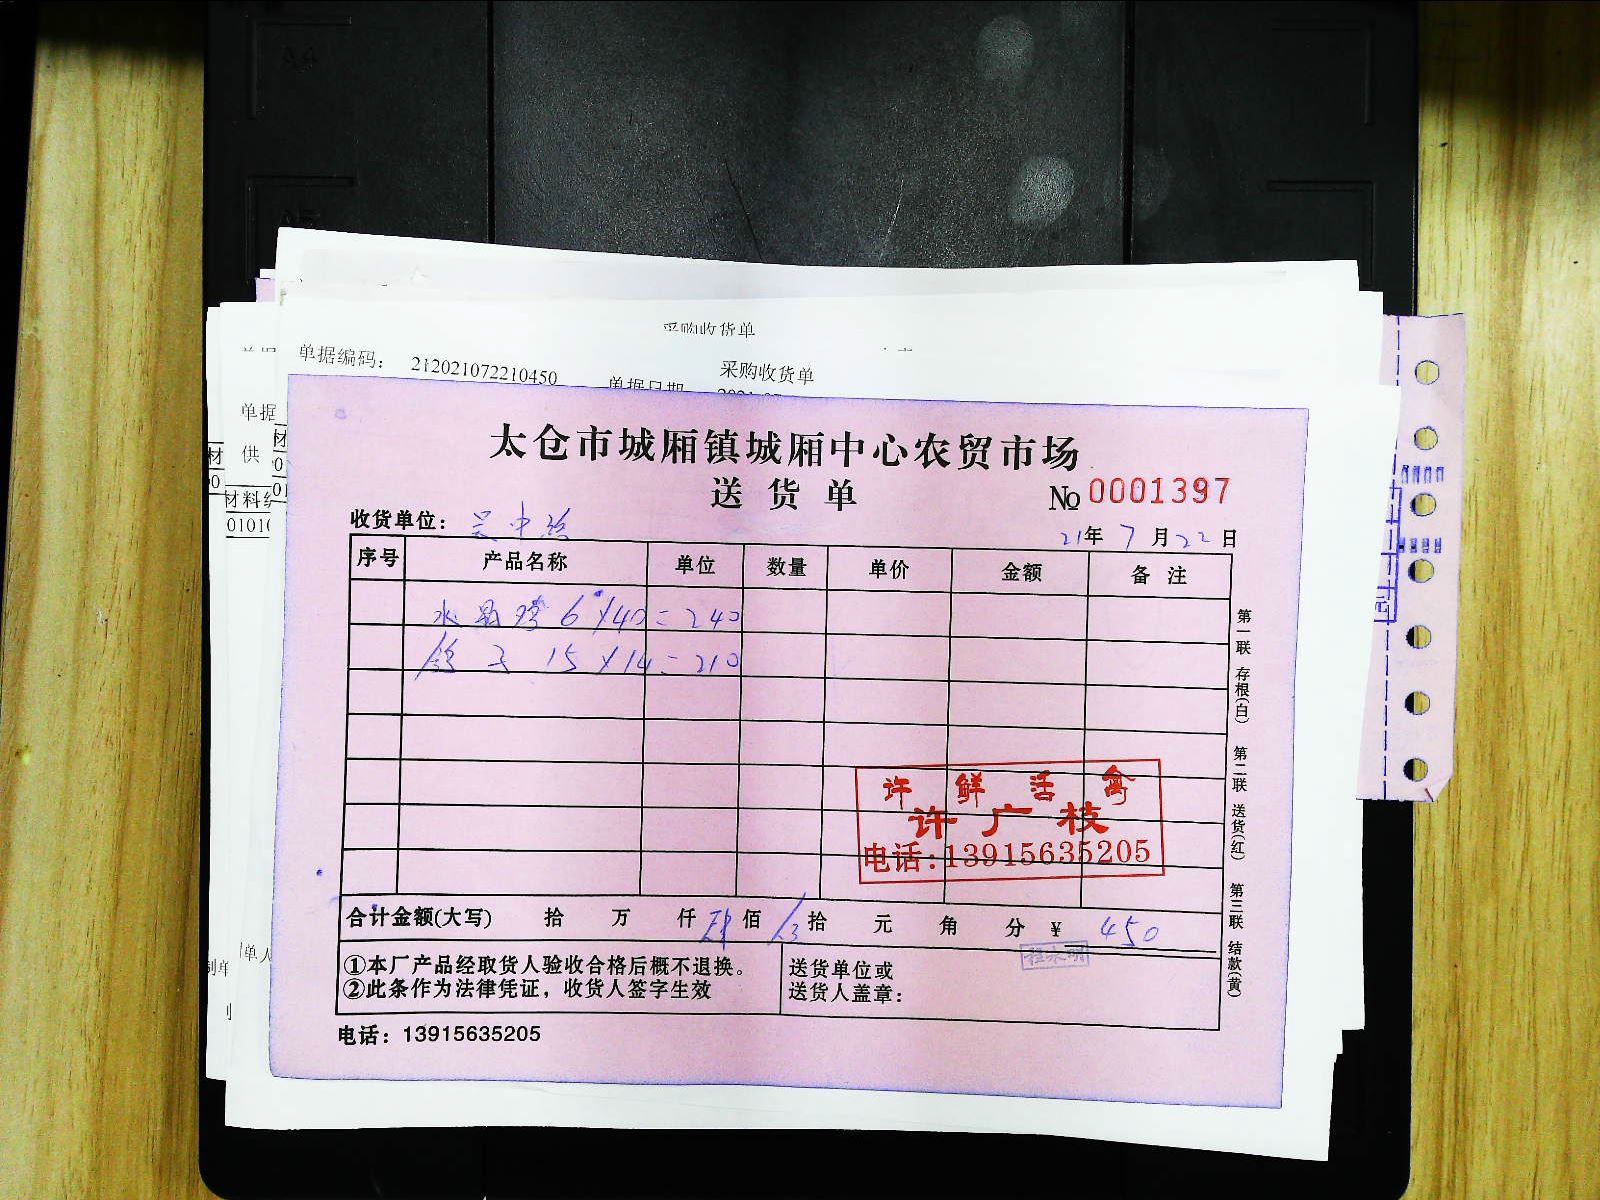 采购收货单
单据编码： 212021072210450
采购收货单
单据日期
单据
供
材料编
太仓市城厢镇城厢中心农贸市场
送货单
№ 0001397
收货单位：
21年 7月 22日
序号 产品名称 单位 数量 单价 金额 备注
水晶 6×40=240
鸽子 15×14=210
许 鲜活禽
许广枝
电话:13915635205
合计金额(大写) 拾 万 仟 肆佰 拾 元 角 分 ¥ 450
①本厂产品经取货人验收合格后概不退换。
②此条作为法律凭证，收货人签字生效
送货单位或
送货人盖章：
电话：13915635205
第一联 存根(白) 第二联 送货(红) 第三联 结款(黄)